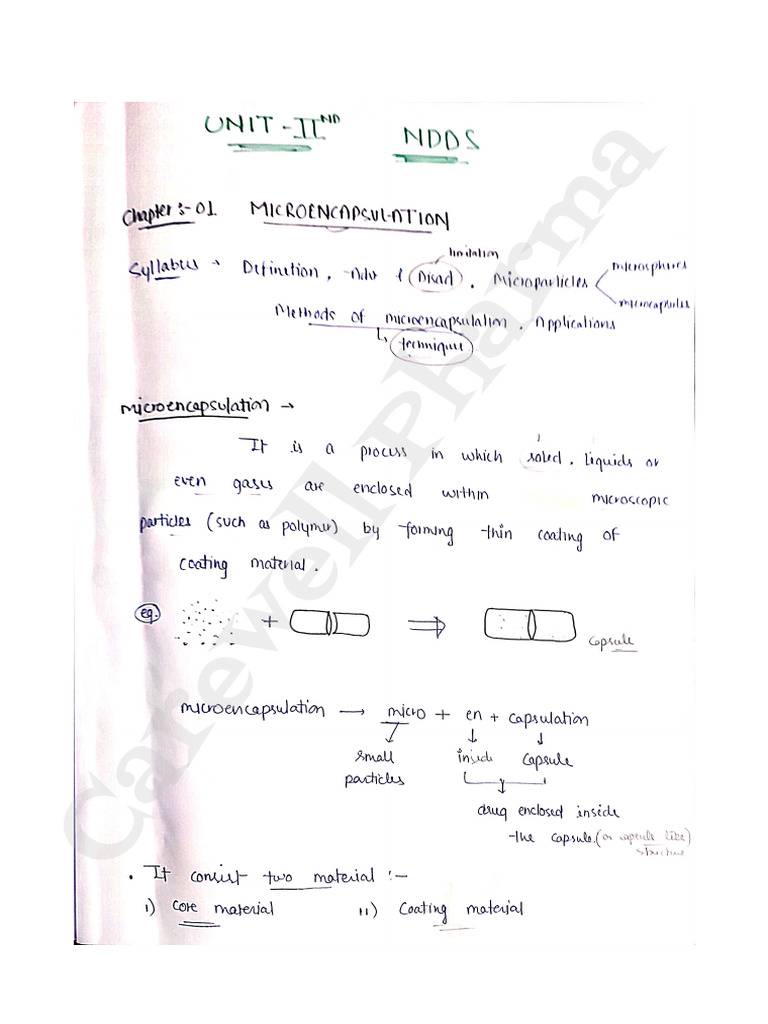 UNIT - II ND NDDS
Chapter :- 01. MICROENCAPSULATION
limitation
Syllabus → Definition, Adv & Disad, Microparticles
microspheres
microcapsules
Methods of microencapsulation, Applications
techniques
microencapsulation →
It is a process in which solid, liquids or
even gases are enclosed within microscopic
particles (such as polymer) by forming thin coating of
coating material.
eg. + ⇒ capsule
microencapsulation → micro + en + capsulation
small inside capsule
particles
drug enclosed inside
the capsule (or capsule like)
structure
• It consist two material :-
i) Core material ii) Coating material
Carewell Pharma